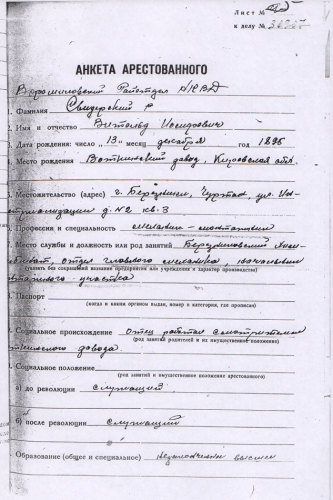 Лист №
к делу №
АНКЕТА АРЕСТОВАННОГО
Ворошиловский Райотдел НКВД
1. Фамилия Свидерский
2. Имя и отчество Витольд Иосифович
3. Дата рождения: число 13 месяц декабря год 1896
4. Место рождения Воткинский завод, Кировская обл.
5. Местожительство (адрес) г. Березники, Чуртан, ул. Ин-
дустриализации д. №2 кв. 3
6. Профессия и специальность механик-монтажник
7. Место службы и должность или род занятий Березниковский
комбинат, отдел главного механика, начальник
участка
(указать без сокращений название предприятия или учреждения и характер производства)
8. Паспорт
(когда и каким органом выдан, номер и категория, где прописан)
9. Социальное происхождение отец работал смотрителем
завода
(род занятий родителей и их имущественное положение)
10. Социальное положение
(род занятий и имущественное положение арестованного)
а) до революции служащий
б) после революции служащий
Образование (общее и специальное) незаконченное высшее